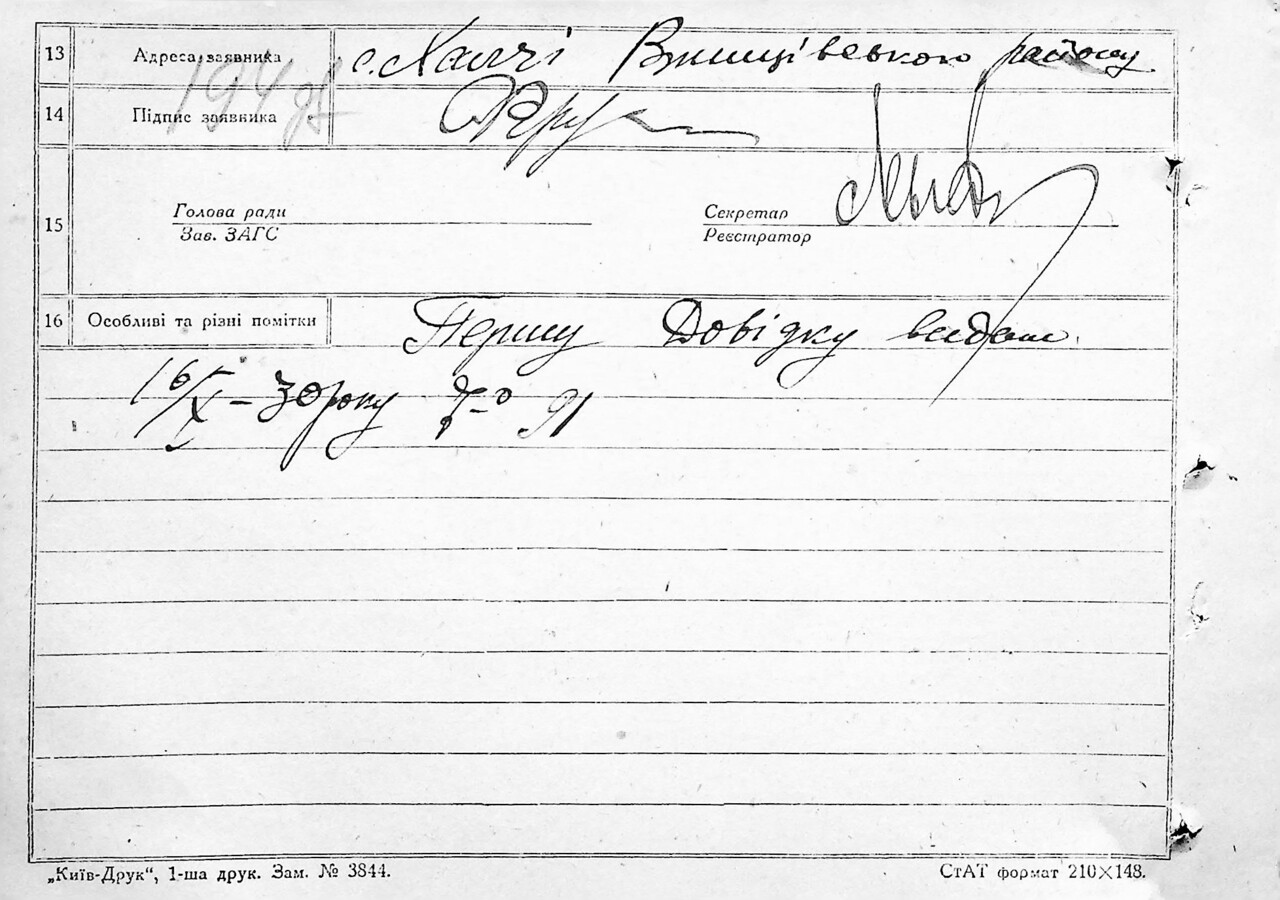 13 Адреса заявника с. Халчі Вінницівського району
14 Підпис заявника
15 Голова ради Секретар
Зав. ЗАГС Реєстратор
16 Особливі та різні помітки Першу Довідку видано
16/X – 30 року № 91
„Київ-Друк“, 1-ша друк. Зам. № 3844. СтАТ формат 210×148.